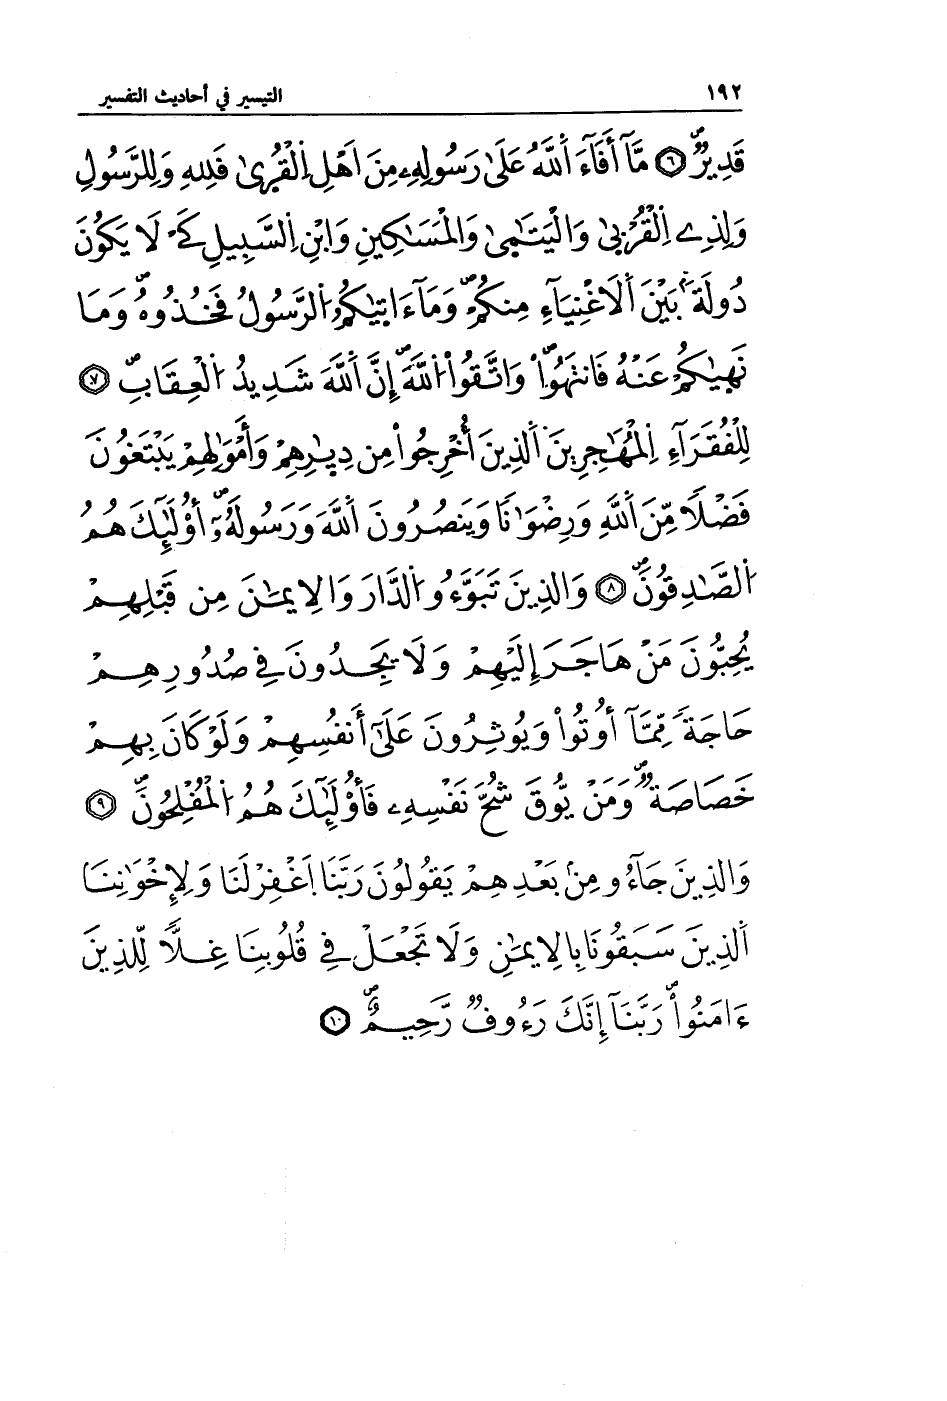 ١٩٢ التيسير في أحاديث التفسير
قَدِيرٌ ٦ مَّآ أَفَآءَ اَللَّهُ عَلَىٰ رَسُولِهِۦ مِنَ اَهْلِ اِلْقُر۪ىٰ فَلِلهِ وَلِلرَّسُولِ
وَلِذِے اِلْقُرْب۪ىٰ وَالْيَتَٰم۪ىٰ وَالْمَسَٰكِينِ وَابْنِ اِلسَّبِيلِ كَےْ لَا يَكُونَ
دُولَةَۢ بَيْنَ اَلَاغْنِيَآءِ مِنكُمْ وَمَآ ءَات۪يٰكُمُ اُلرَّسُولُ فَخُذُوهُ وَمَا
نَه۪يٰكُمْ عَنْهُ فَانتَهُواْ وَاتَّقُواْ اُللَّهَ إِنَّ اَللَّهَ شَدِيدُ اُلْعِقَابِ ٧
لِلْفُقَرَآءِ اِلْمُهَٰجِرِينَ اَلذِينَ أُخْرِجُواْ مِن دِيٰ۪رِهِمْ وَأَمْوَٰلِهِمْ يَبْتَغُونَ
فَضْلًا مِّنَ اَللَّهِ وَرِضْوَٰنًا وَيَنصُرُونَ اَللَّهَ وَرَسُولَهُۥٓ أُوْلَٰٓئِكَ هُمُ
اُلصَّٰدِقُونَ ٨ وَالذِينَ تَبَوَّءُو اُلدَّارَ وَالِايمَٰنَ مِن قَبْلِهِمْ
يُحِبُّونَ مَنْ هَاجَرَ إِلَيْهِمْ وَلَا يَجِدُونَ فِے صُدُورِهِمْ
حَاجَةً مِّمَّآ أُوتُواْ وَيُوثِرُونَ عَلَىٰٓ أَنفُسِهِمْ وَلَوْ كَانَ بِهِمْ
خَصَاصَةٌ وَمَنْ يُّوقَ شُحَّ نَفْسِهِۦ فَأُوْلَٰٓئِكَ هُمُ اُلْمُفْلِحُونَ ٩
وَالذِينَ جَآءُو مِنۢ بَعْدِهِمْ يَقُولُونَ رَبَّنَا اَغْفِرْ لَنَا وَلِإِخْوَٰنِنَا
اَلذِينَ سَبَقُونَا بِالِايمَٰنِ وَلَا تَجْعَلْ فِے قُلُوبِنَا غِلًّا لِّلذِينَ
ءَامَنُواْ رَبَّنَآ إِنَّكَ رَءُوفٌ رَّحِيمٌ ١٠